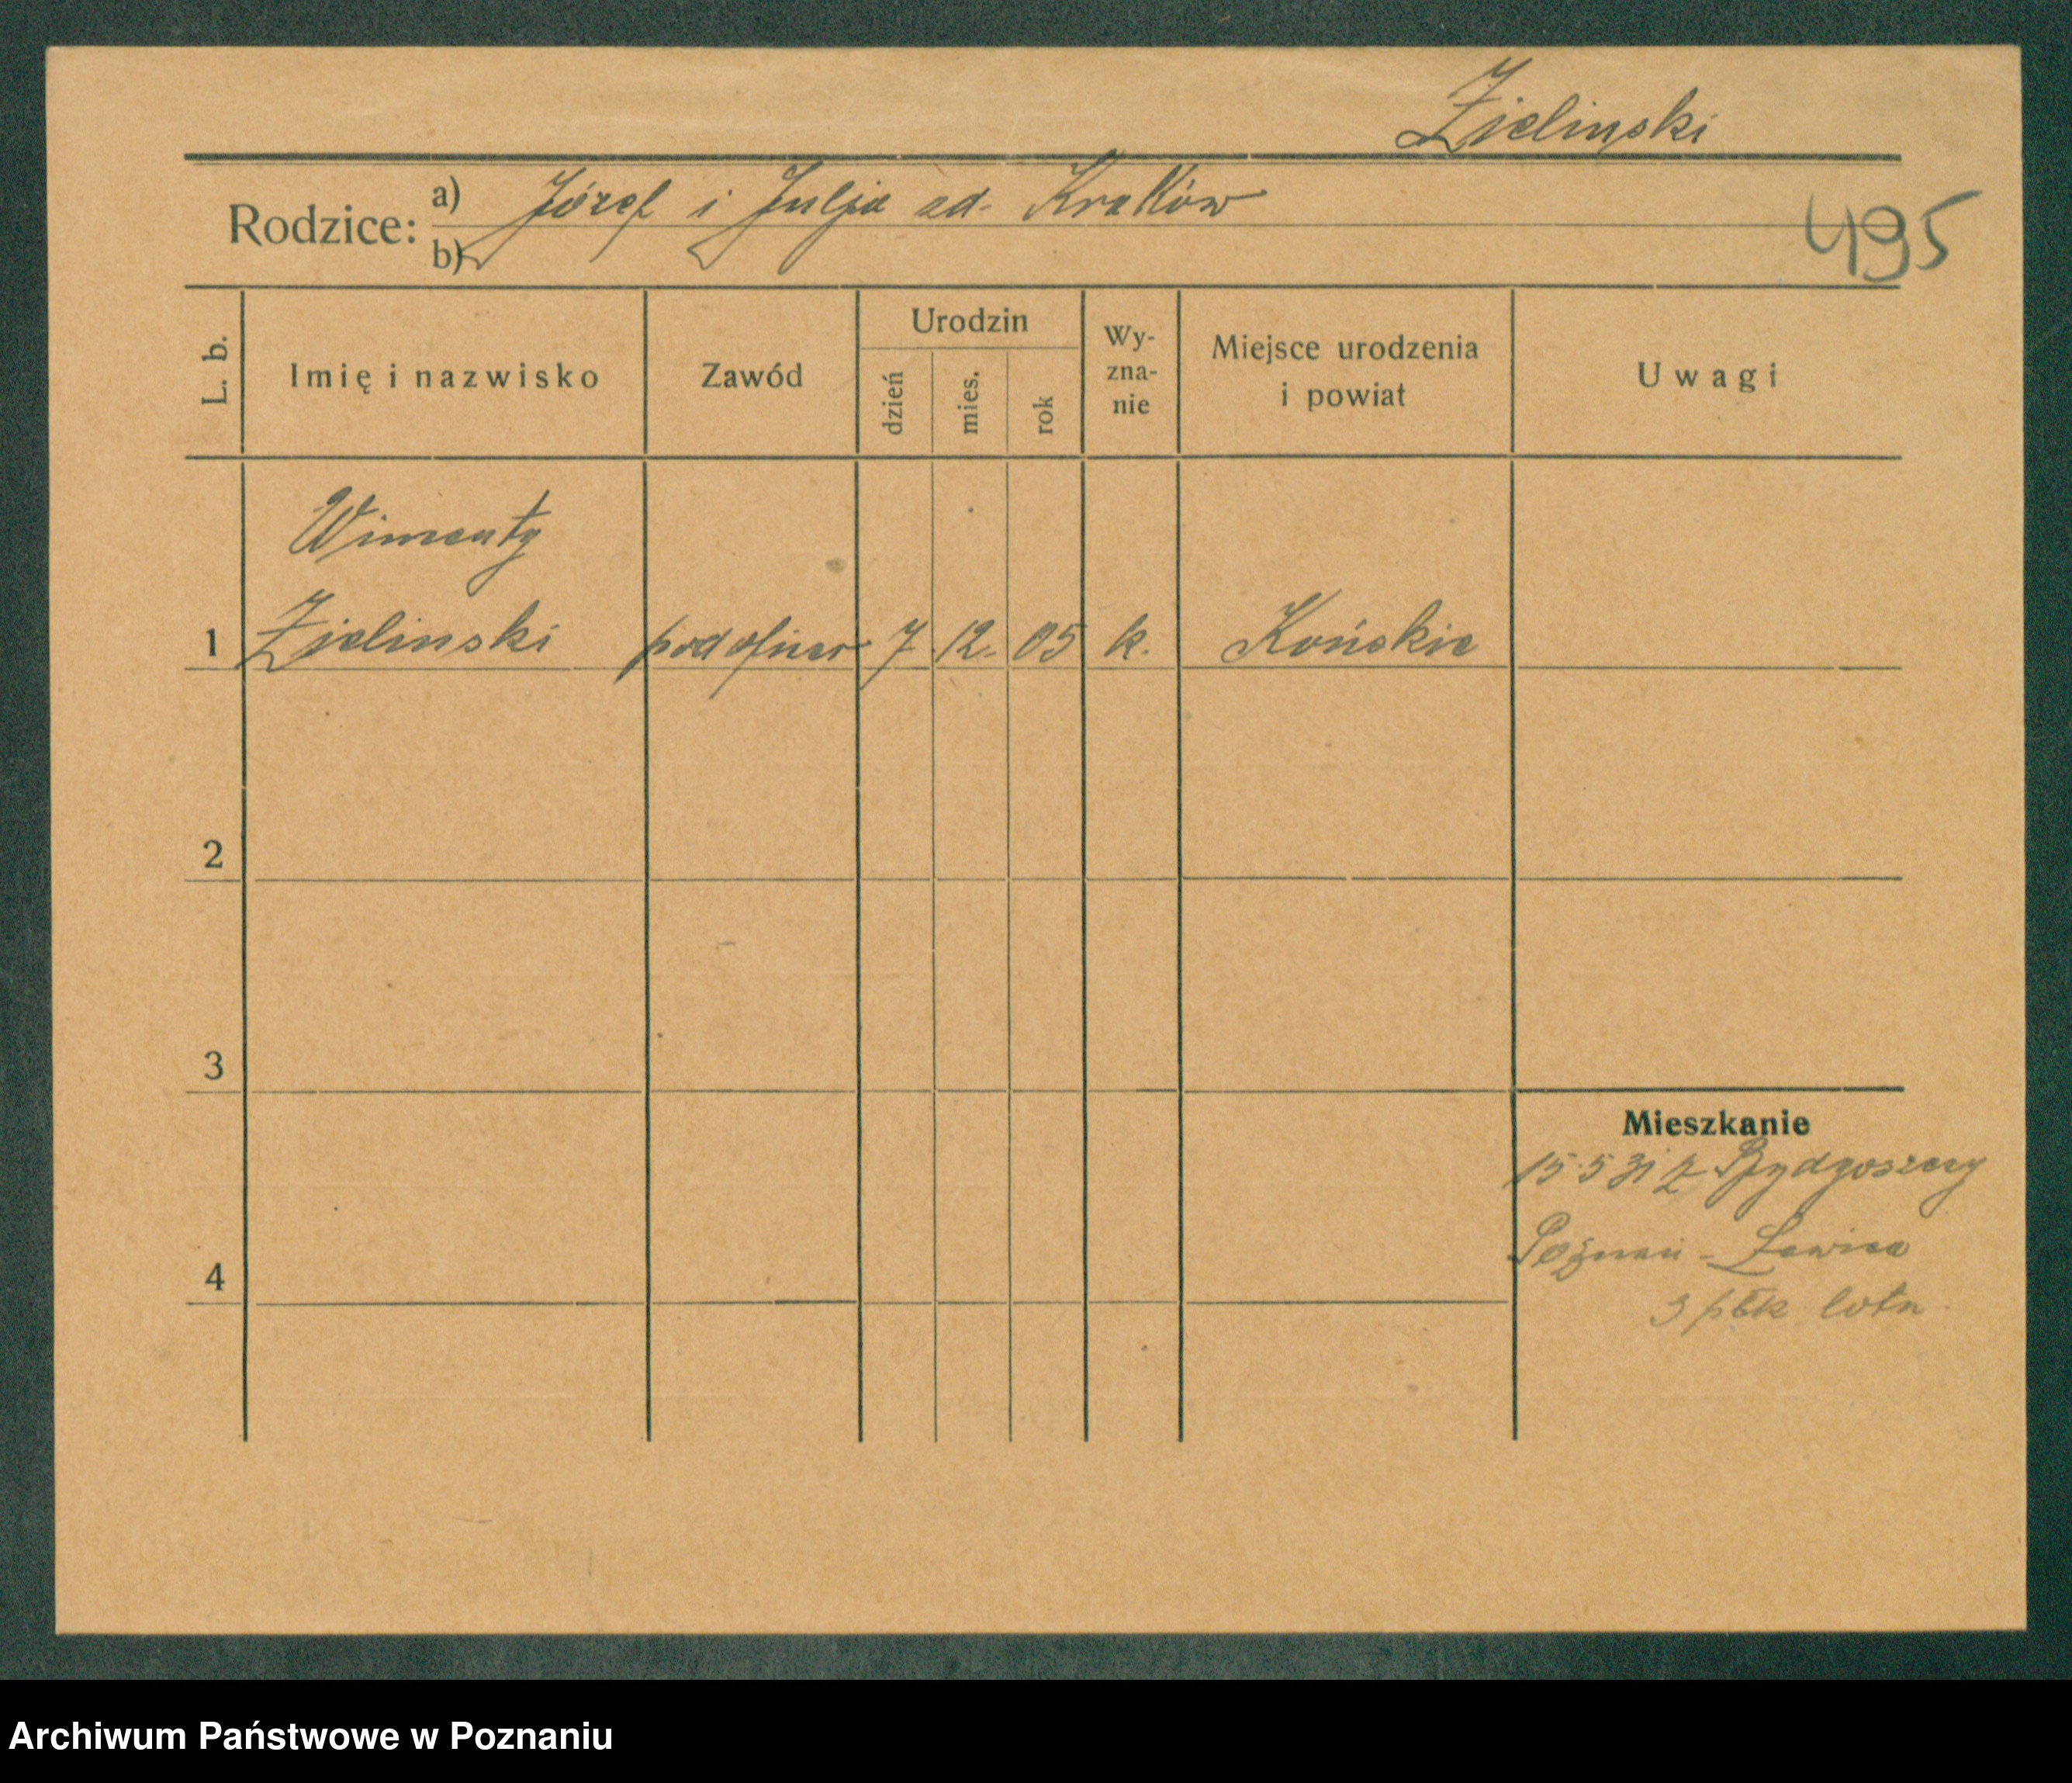 Zielinski
Rodzice: a) Józef i Julja zd. Kraków
b)
495
L. b.
Imię i nazwisko
Zawód
Urodzin
dzień
mies.
rok
Wy-
zna-
nie
Miejsce urodzenia
i powiat
Uwagi
Wincenty
1 Zielinski podoficer 7. 12. 05 k. Końskie
2
3
Mieszkanie
15.5 31 z Bydgoszczy
Poznań - Ławica
4
3 płk lotn.
Archiwum Państwowe w Poznaniu